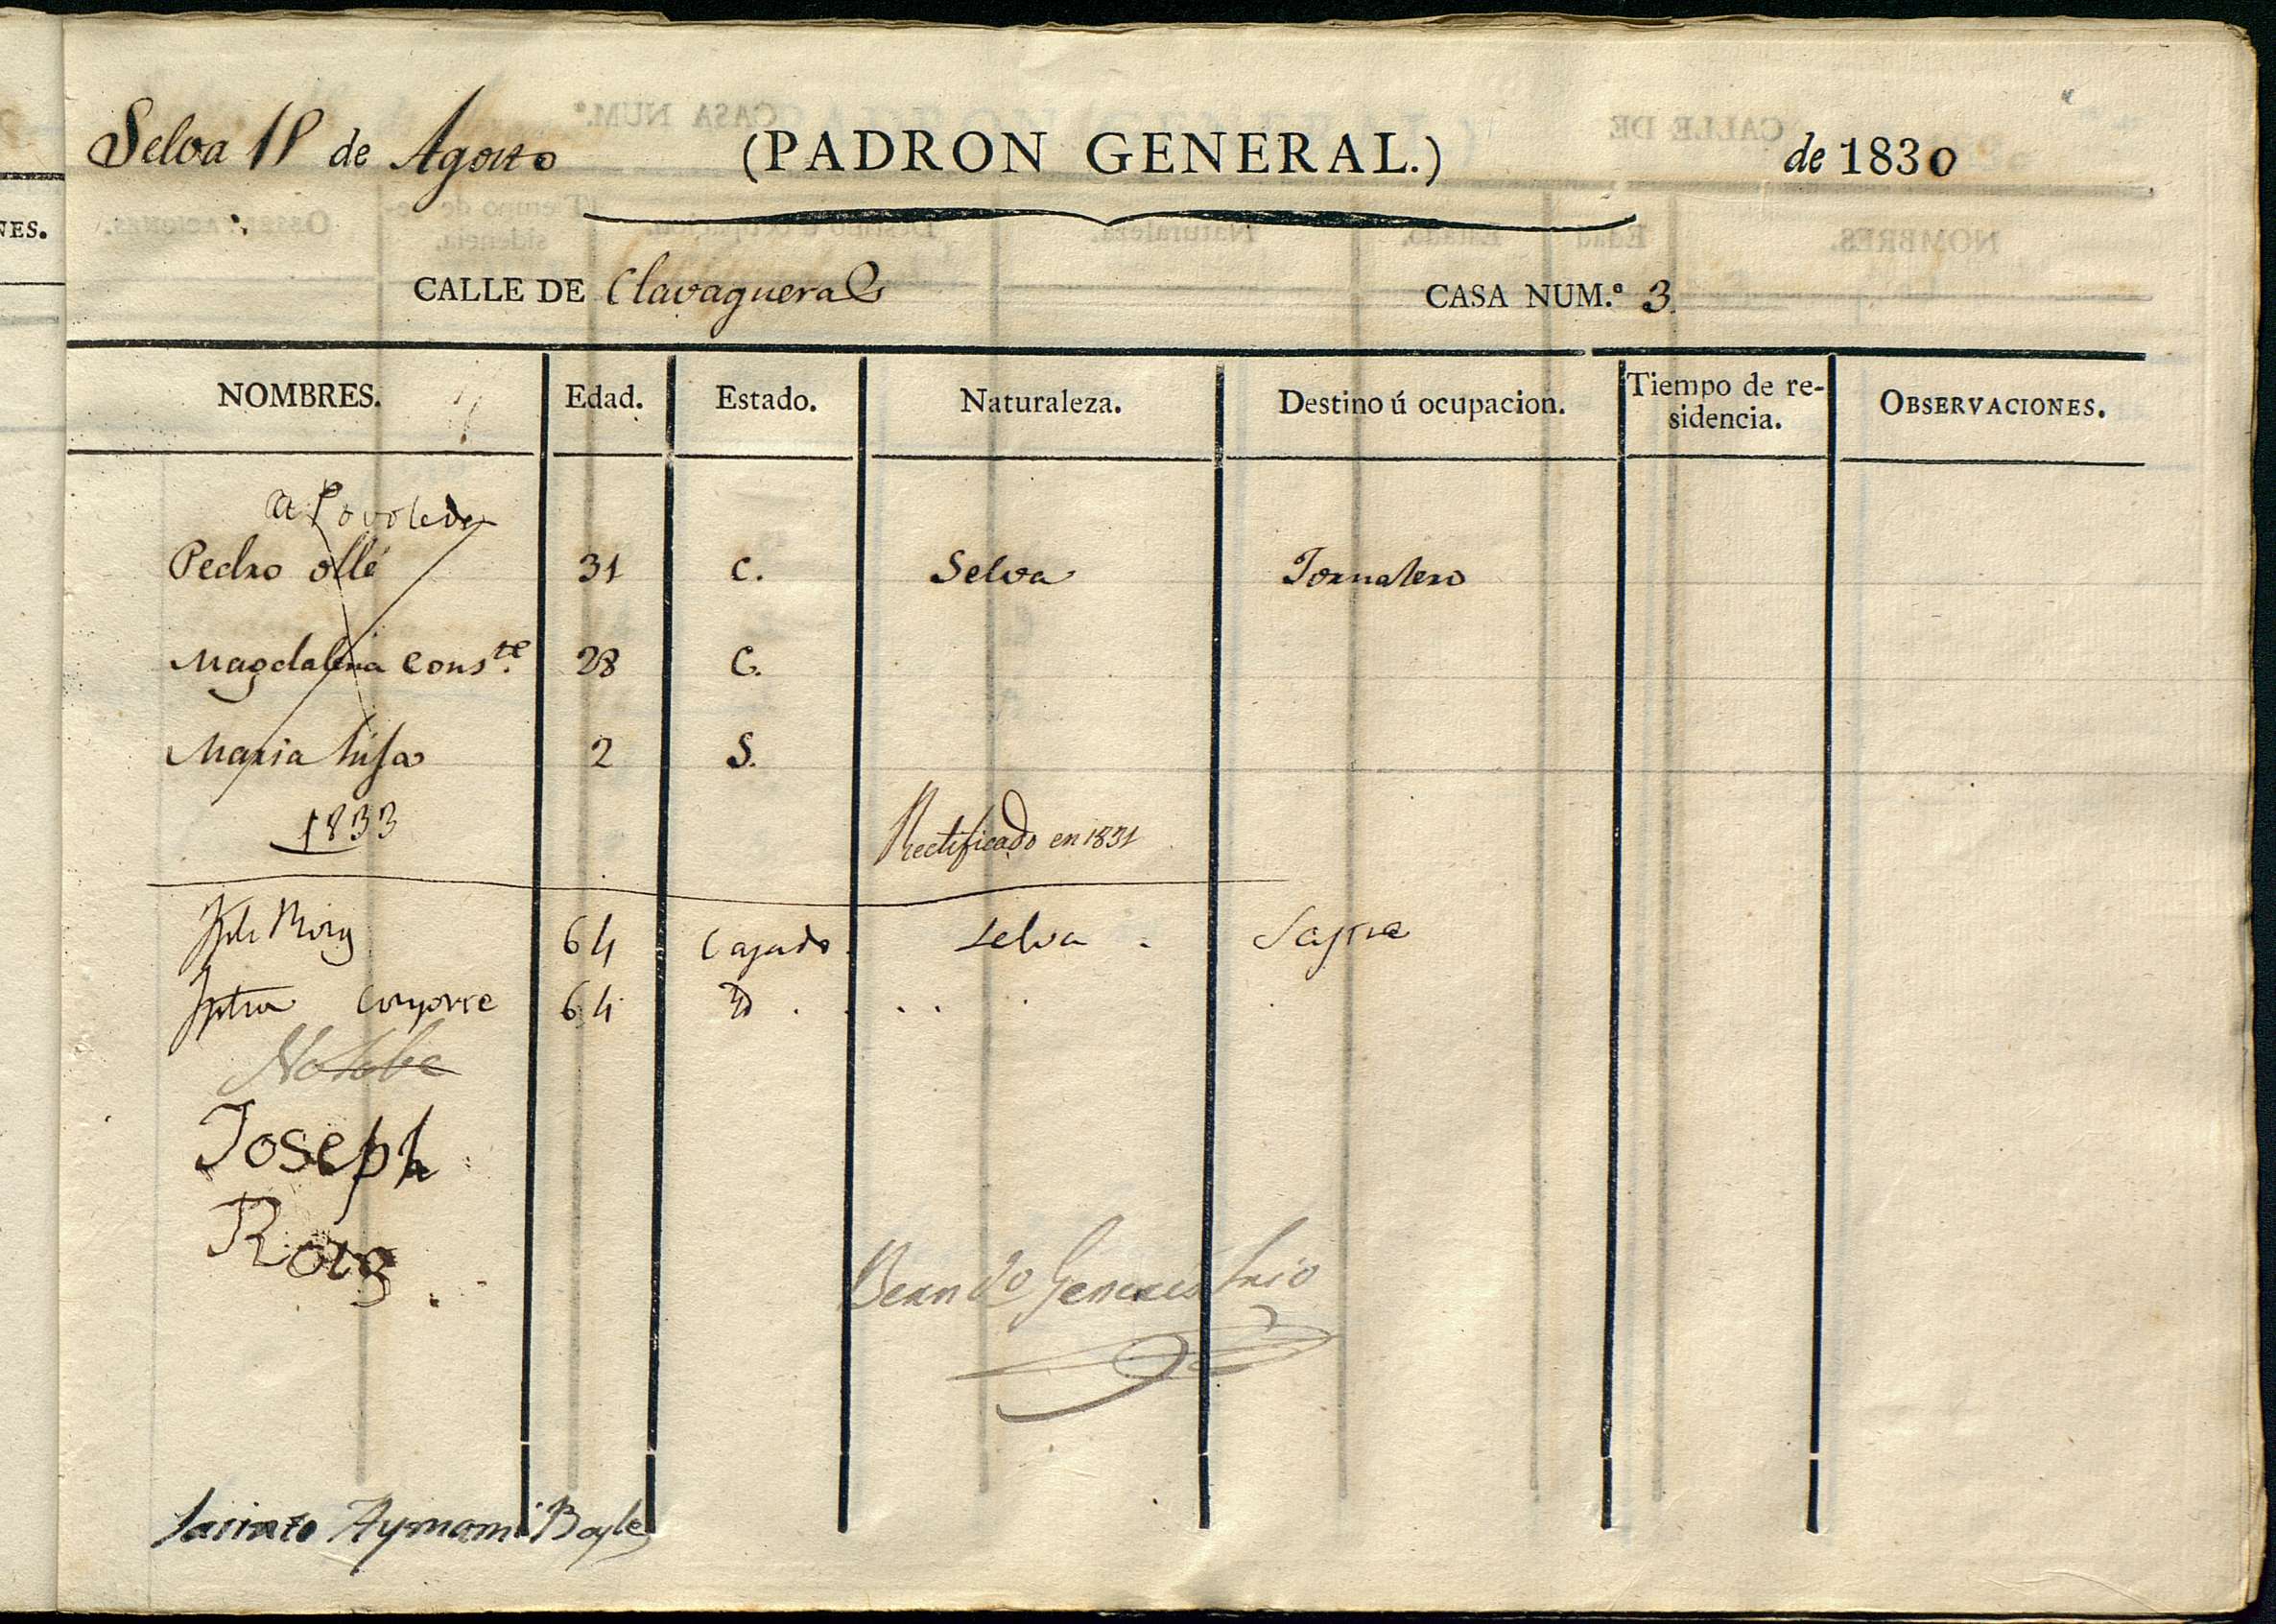 NES.
Selva 18 de Agosto (PADRON GENERAL.) de 1830
CALLE DE Clavagueras CASA NUM.º 3.
NOMBRES. Edad. Estado. Naturaleza. Destino ú ocupacion. Tiempo de re-
sidencia. OBSERVACIONES.
a Poboleda
Pedro ollé 31 C. Selva Jornalero
Magdalena cons.te 28 C.
Maria hija 2 S.
1833
Rectificado en 1831
Roig 64 Casado. Selva. Sastre
64 Id
Joseph
Roig.
Jacinto Aymami Bayle